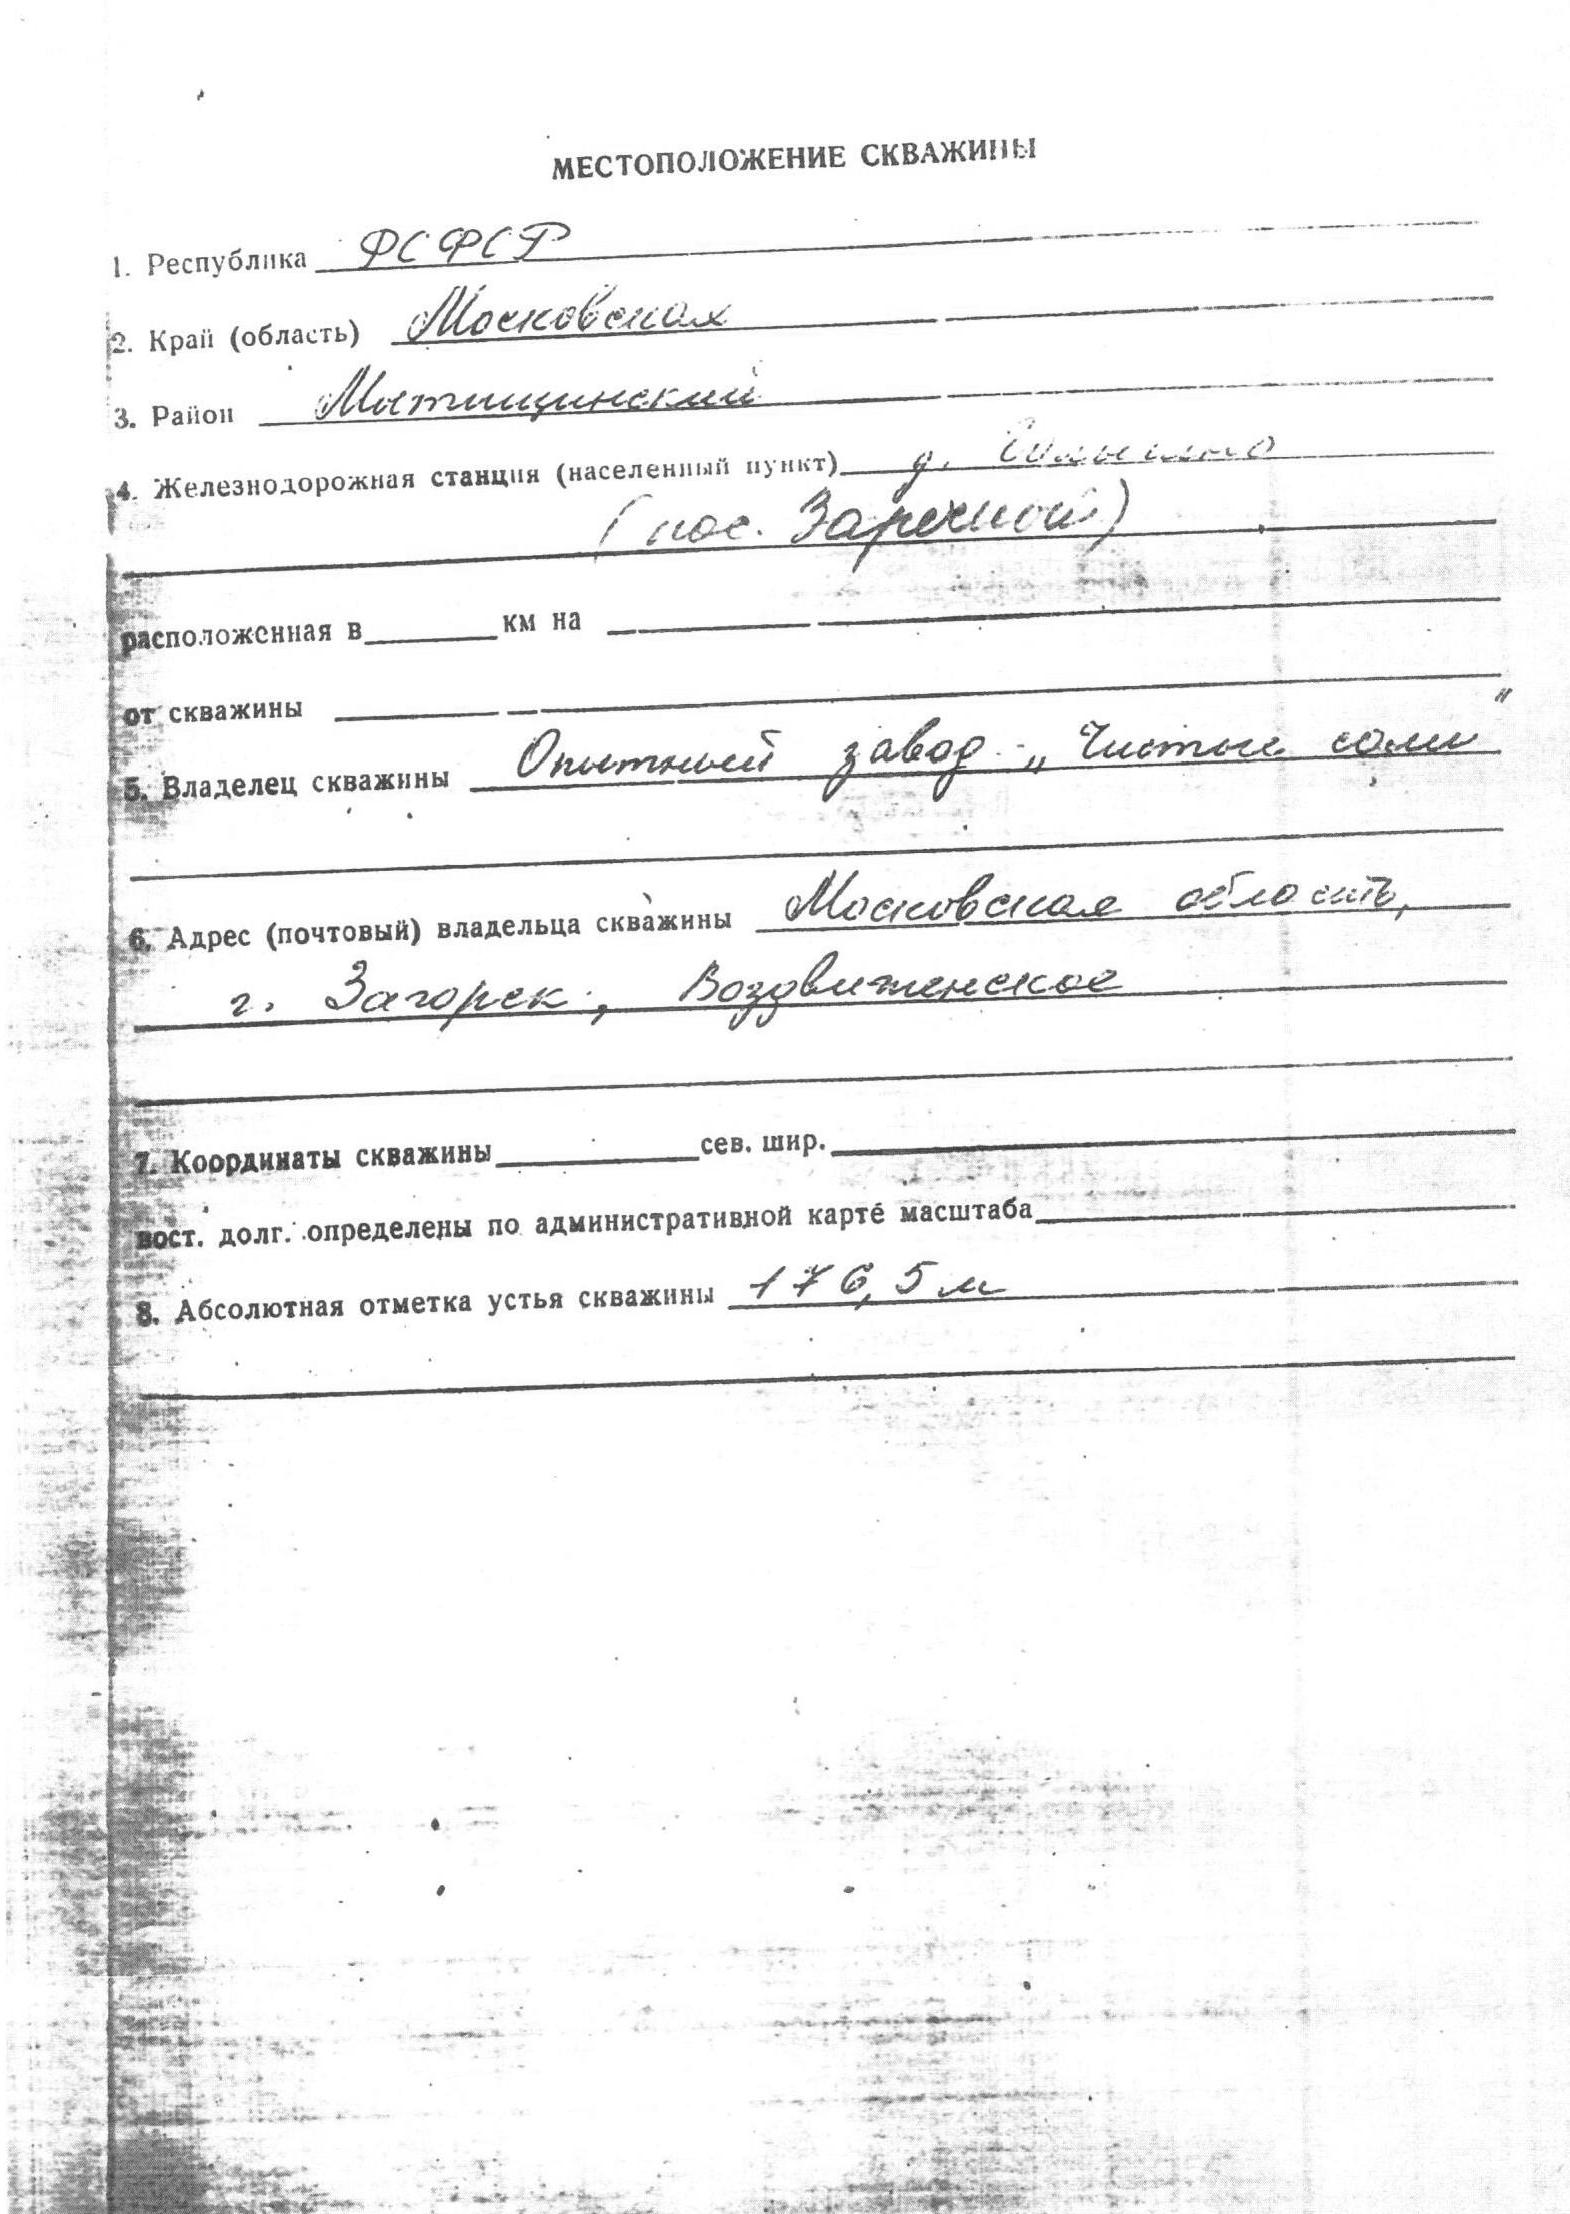 МЕСТОПОЛОЖЕНИЕ СКВАЖИНЫ
1. Республика РСФСР
2. Край (область) Московская
3. Район Мытищинский
4. Железнодорожная станция (населенный пункт) д.
(пос. Заречный)
расположенная в км на
от скважины
5. Владелец скважины Опытный завод „Чистые соли"
6. Адрес (почтовый) владельца скважины Московская область,
г. Загорск, Воздвиженское
7. Координаты скважины сев. шир.
вост. долг. определены по административной карте масштаба
8. Абсолютная отметка устья скважины 176,5 м